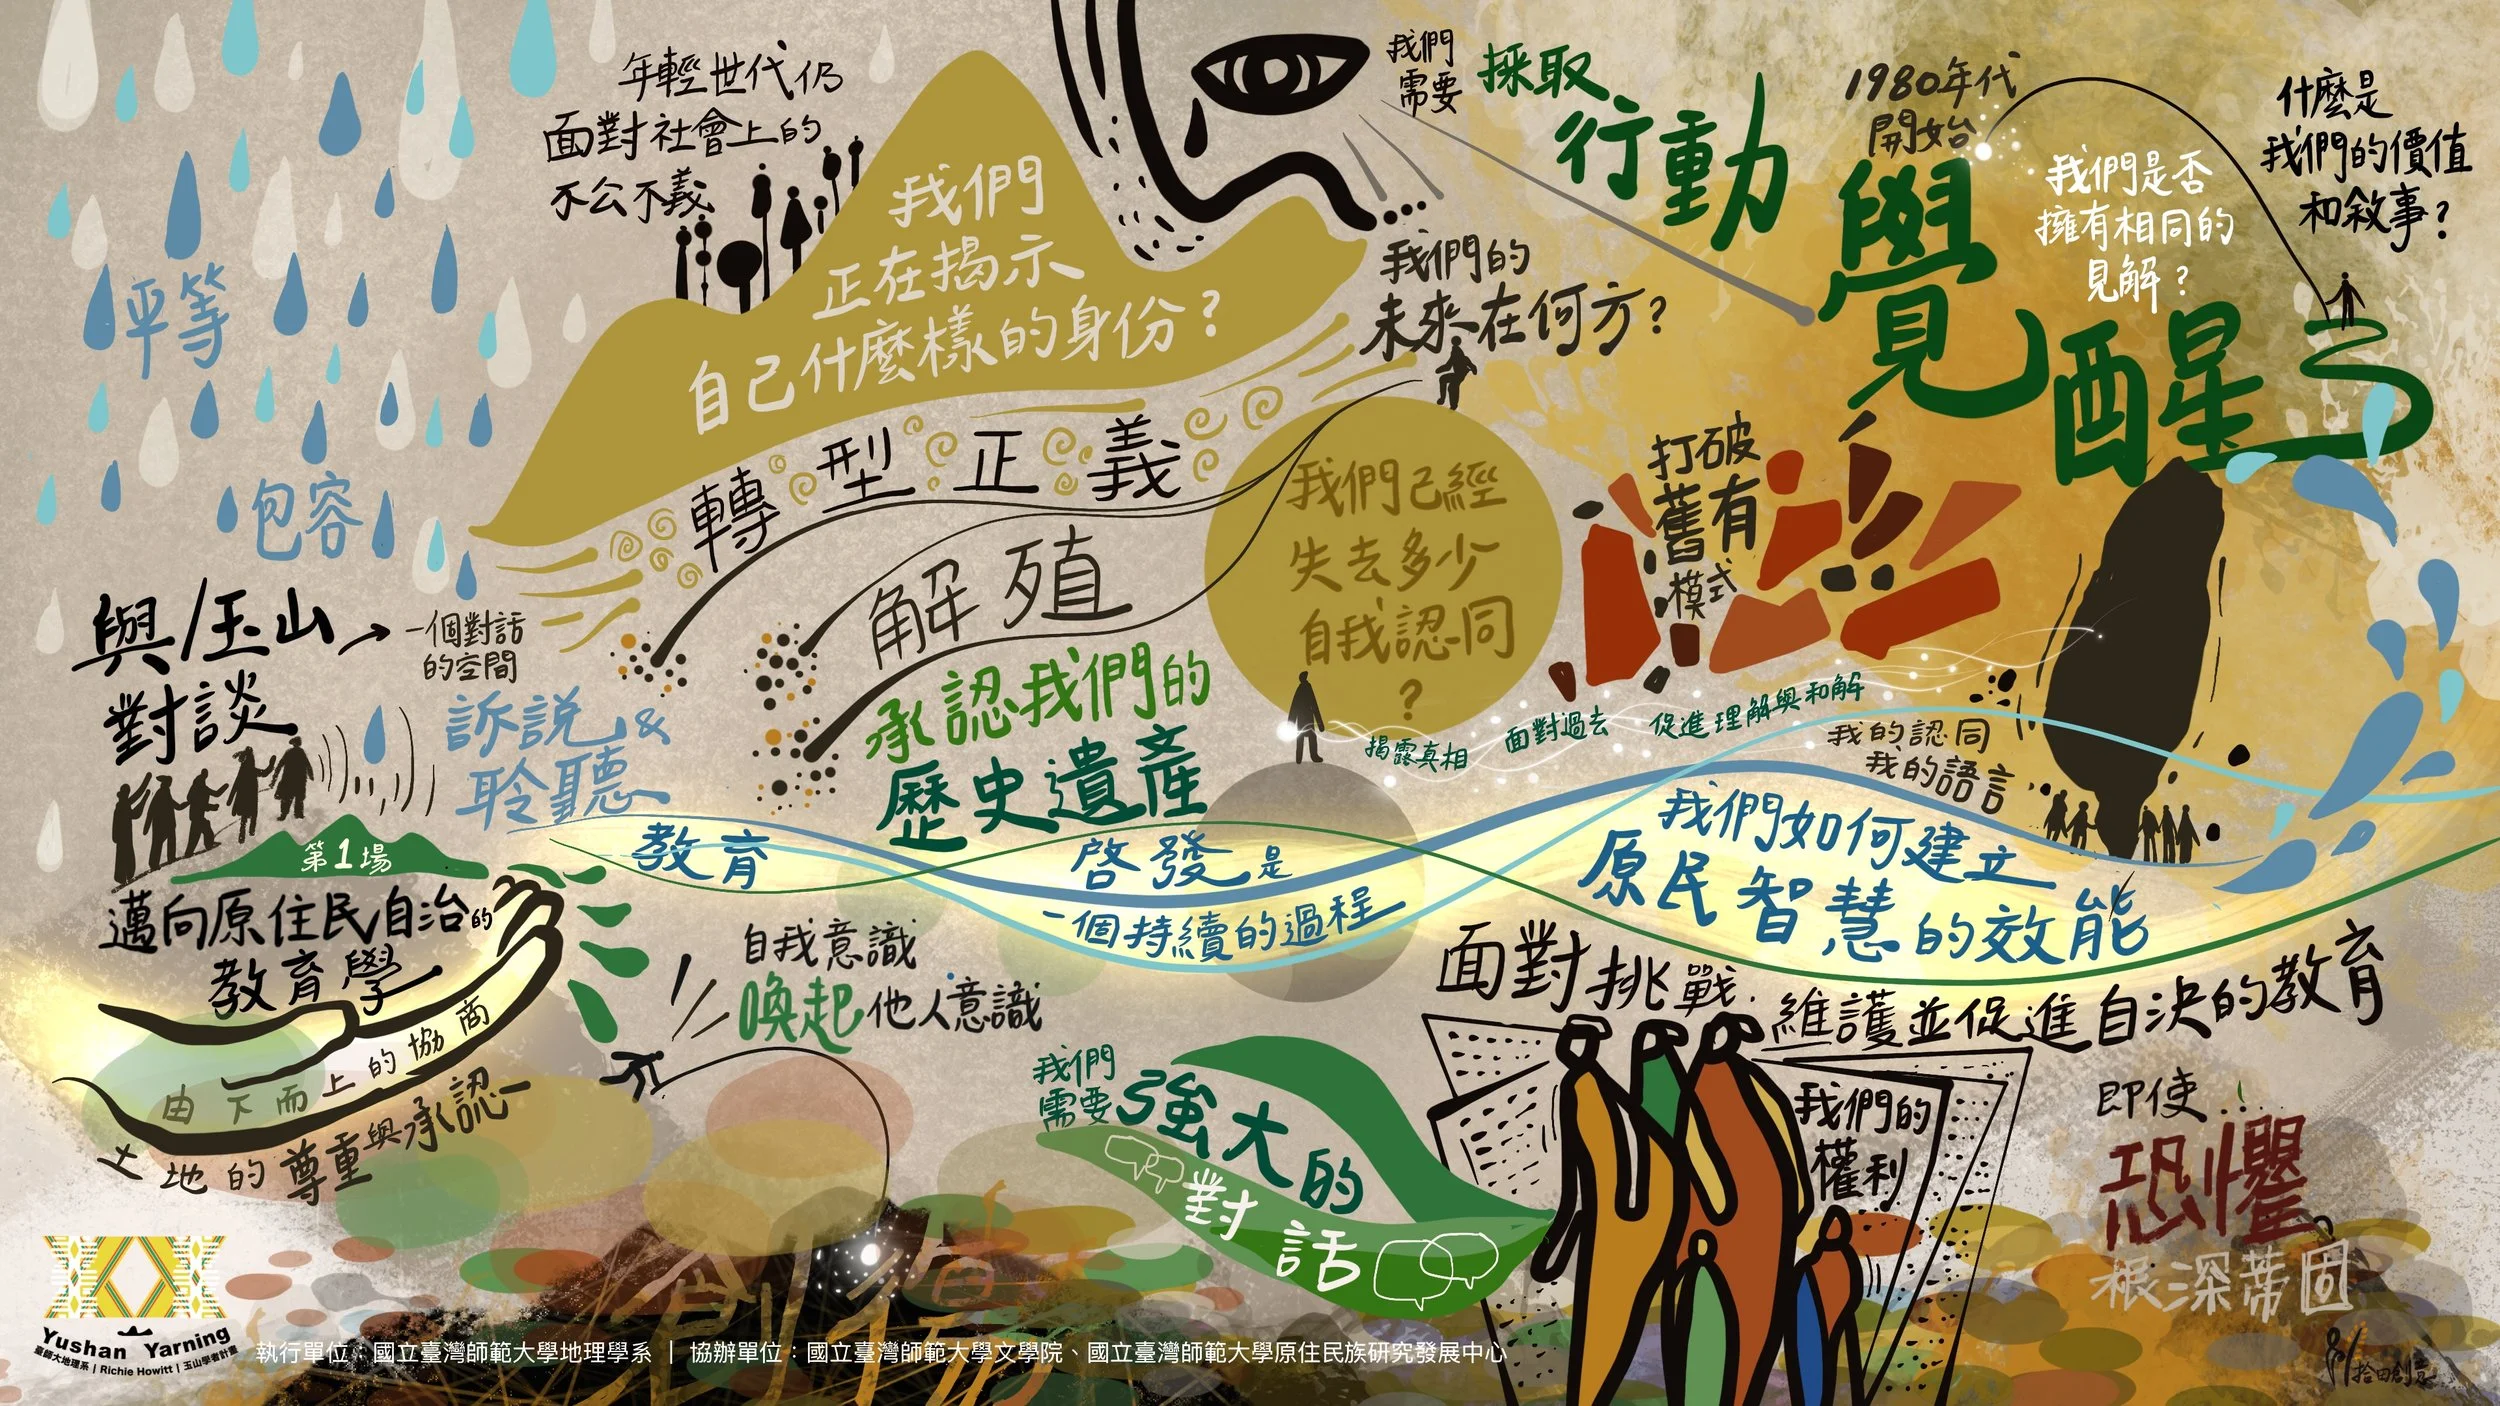 年輕世代仍
面對社會上的
不公不義
我們
正在揭示
自己什麼樣的身份？
我們
需要
採取
行動
1980年代
開始
覺
醒
我們是否
擁有相同的
見解？
什麼是
我們的價值
和敘事？
我們的
未來在何方？
平等
包容
轉型正義
解殖
我們已經
失去多少
自我認同
？
打破
舊有
模式
與/玉山
對談
一個對話
的空間
訴說&
聆聽
承認我們的
歷史遺產
揭露真相
面對過去
促進理解與和解
我的認同
我的語言
第1場
邁向原住民自治的
教育學
由下而上的協商
土地的尊重與承認
教育
啓發是
一個持續的過程
我們如何建立
原民智慧的效能
自我意識
喚起他人意識
面對挑戰.
維護並促進自決的教育
我們
需要
強大的
對話
我們的
權利
即使...
恐懼
根深蒂固
創傷
Yushan Yarning
臺師大地理系 | Richie Howitt | 玉山學者計畫
執行單位：國立臺灣師範大學地理學系 | 協辦單位：國立臺灣師範大學文學院、國立臺灣師範大學原住民族研究發展中心
拾田創意